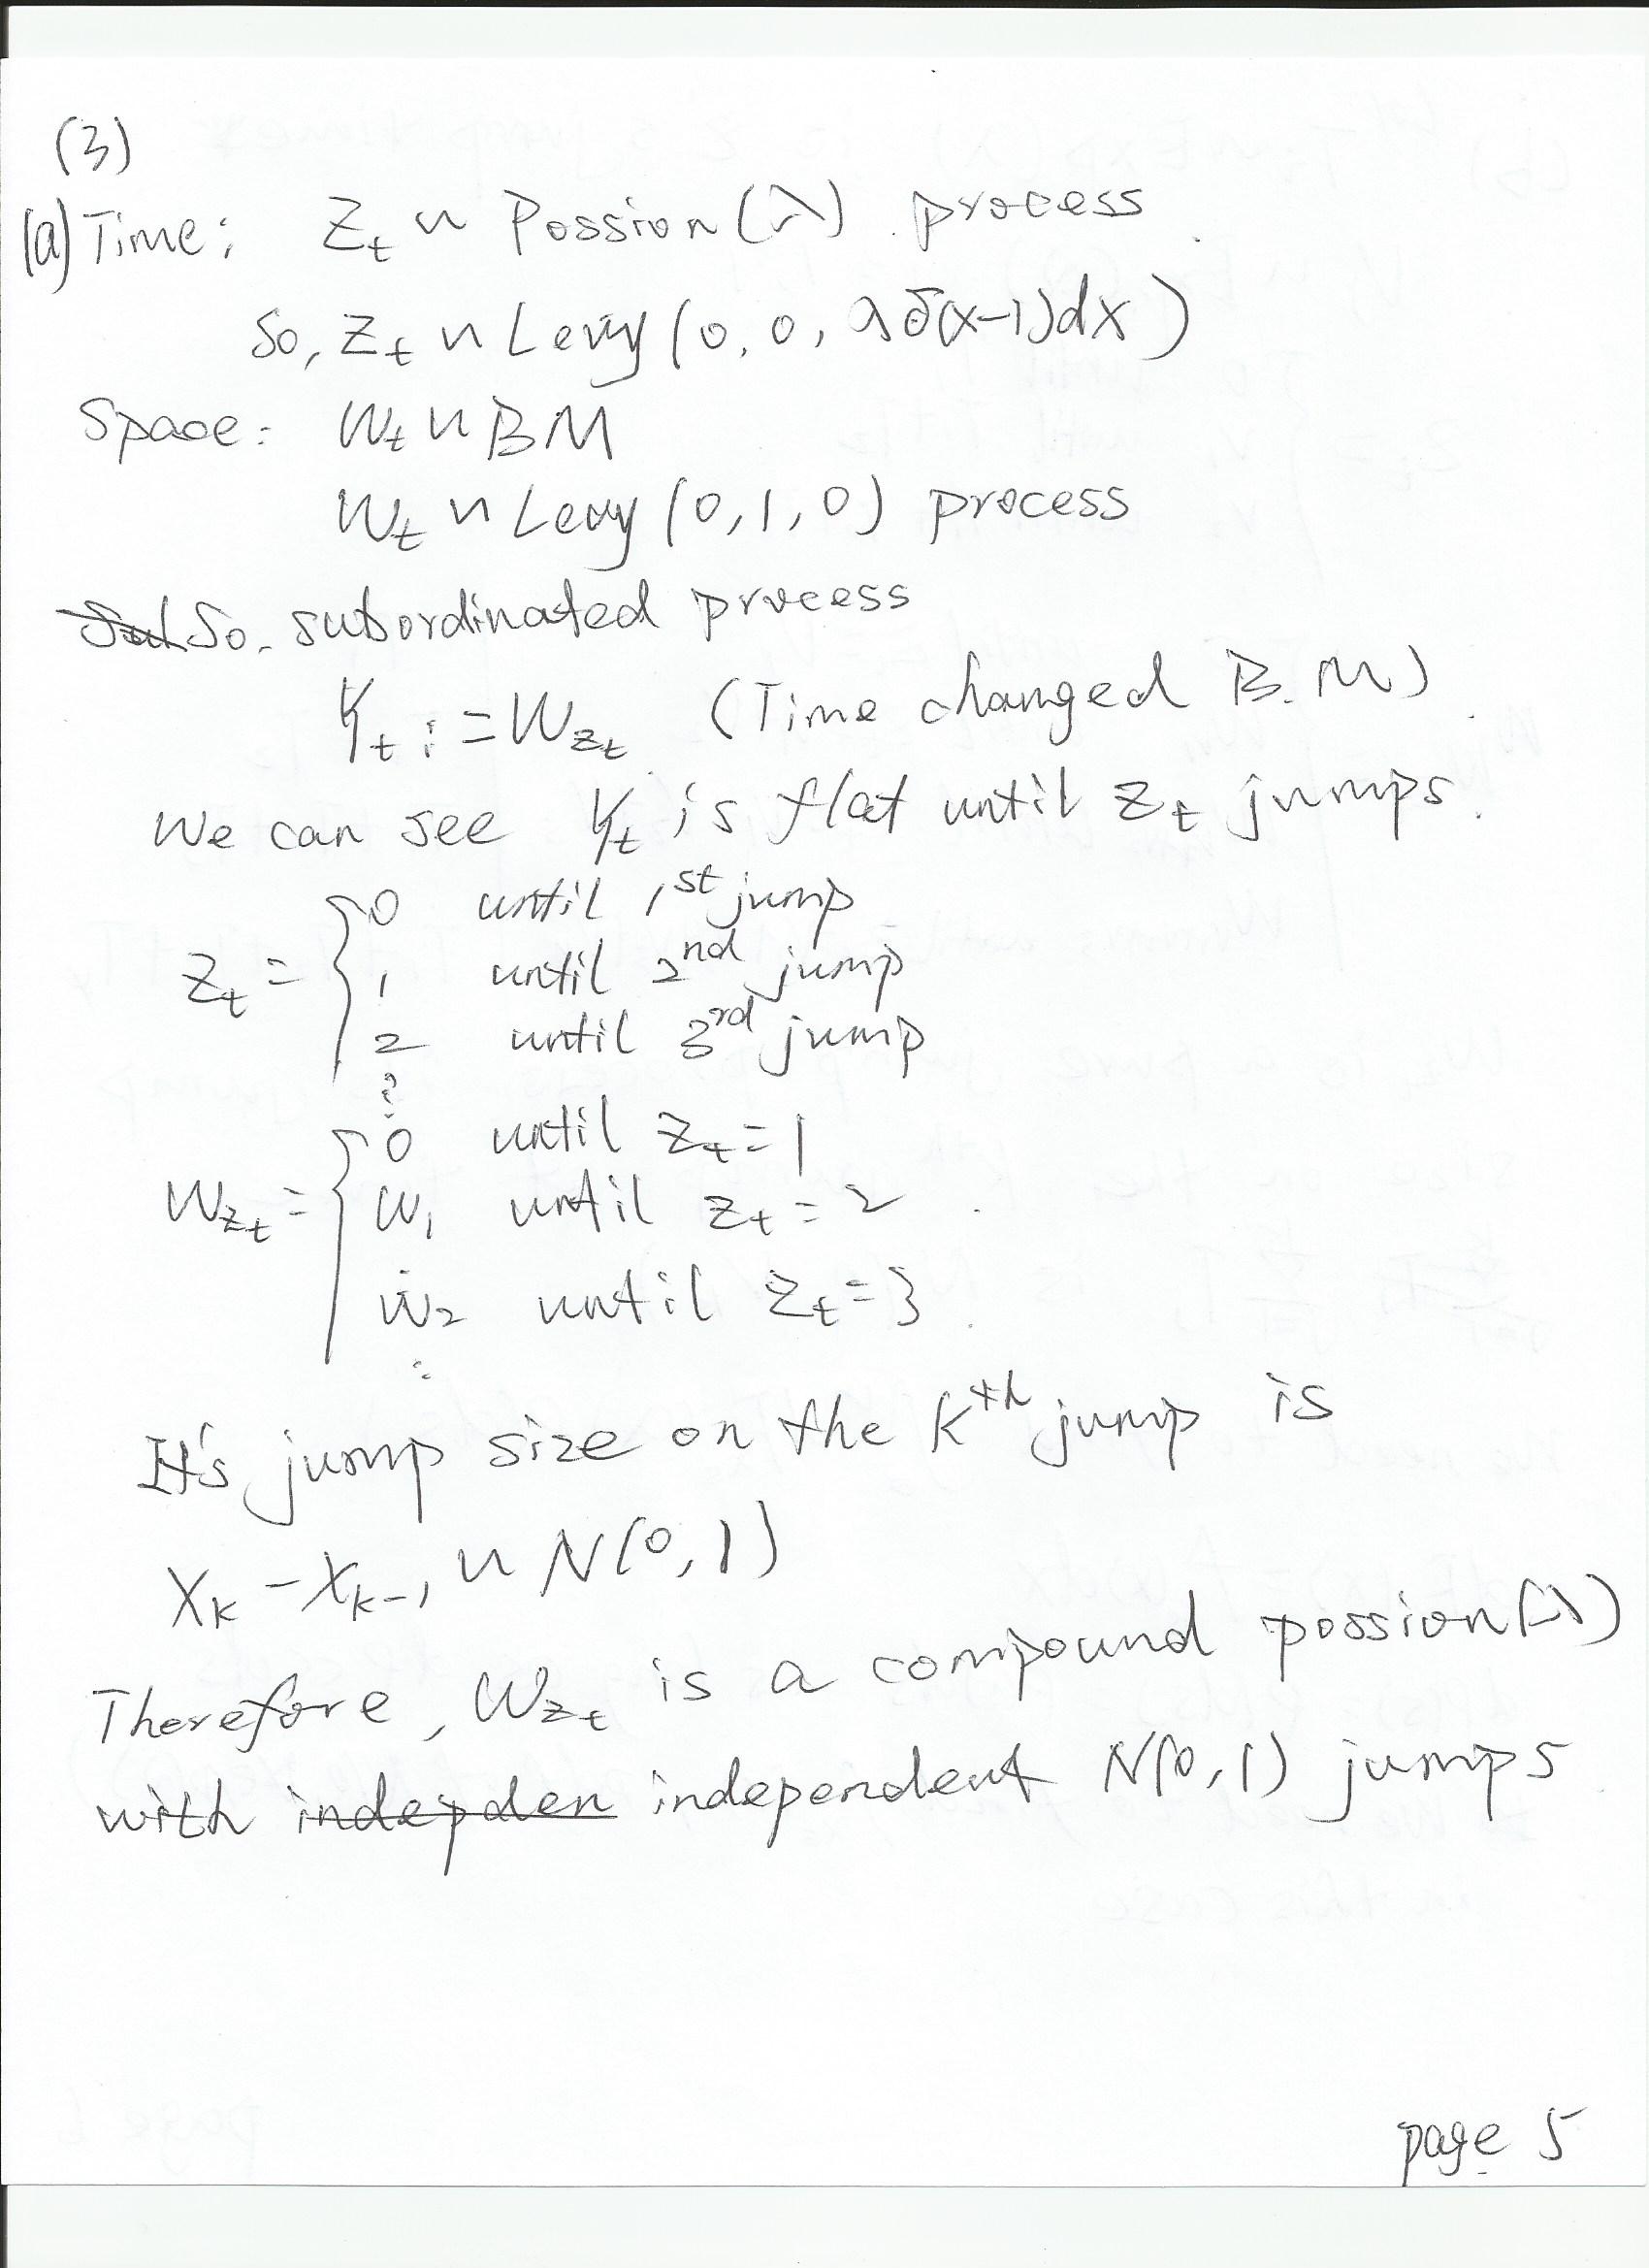 (3)
(a) Time: Z_t ~ Possion(λ) process.
So, Z_t ~ Levy(0, 0, λδ(x-1)dx)
Space: W_t ~ BM
W_t ~ Levy(0,1,0) process
So, subordinated process
Y_t := W_{Z_t} (Time changed B.M)
We can see Y_t is flat until Z_t jumps.
0 until 1st jump
Z_t = { 1 until 2nd jump
2 until 3rd jump
⋮
0 until Z_t = 1
W_{Z_t} = { W_1 until Z_t = 2
W_2 until Z_t = 3
⋮
It's jump size on the Kth jump is
X_K - X_{K-1} ~ N(0,1)
Therefore, W_{Z_t} is a compound possion(λ)
with indepden independent N(0,1) jumps
page 5